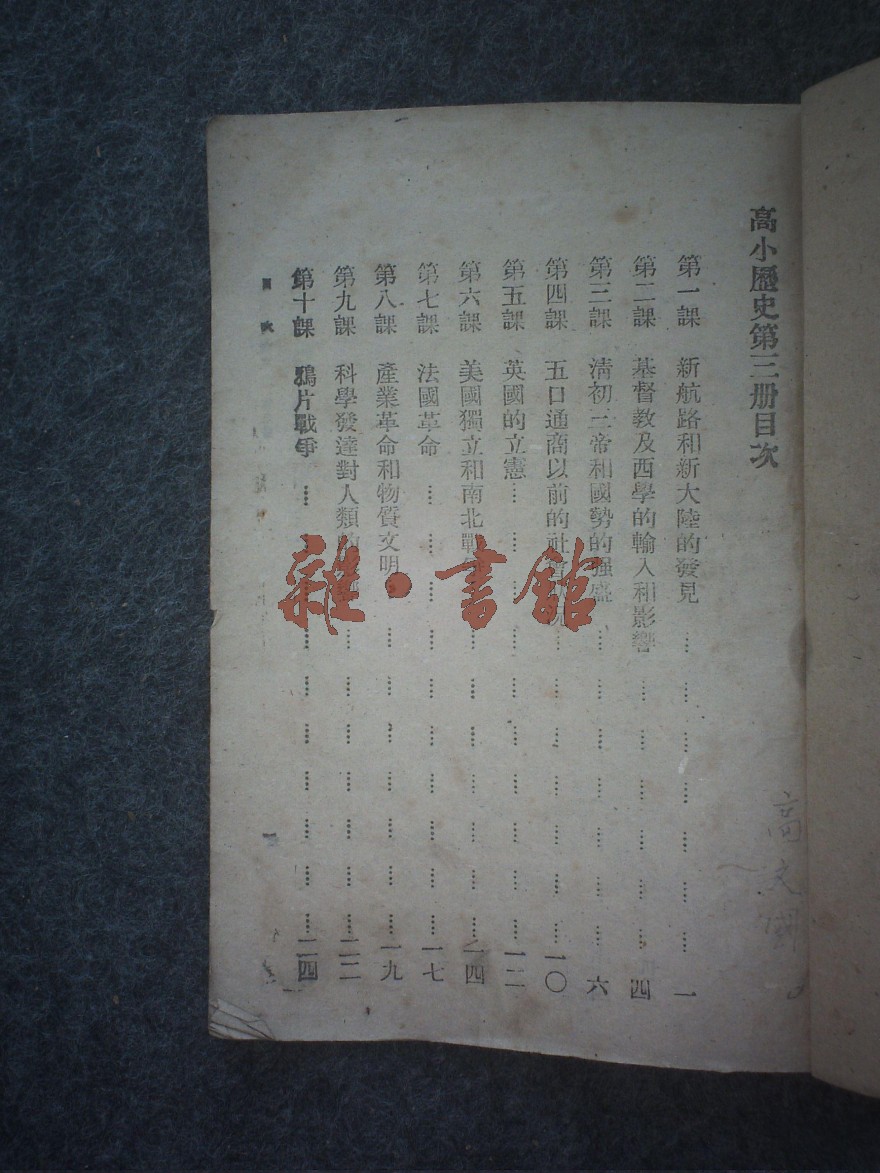 高小歷史第三册目次
第一課 新航路和新大陸的發見 …… 一
第二課 基督教及西學的輸入和影響 …… 四
第三課 淸初三帝和國勢的强盛 …… 六
第四課 五口通商以前的社 …… 一〇
第五課 英國的立憲 …… 一二
第六課 美國獨立和南北戰 …… 一四
第七課 法國革命 …… 一七
第八課 產業革命和物質文明 …… 一九
第九課 科學發達對人類的 …… 二二
第十課 鴉片戰爭 …… 二四
目次
雜·書館